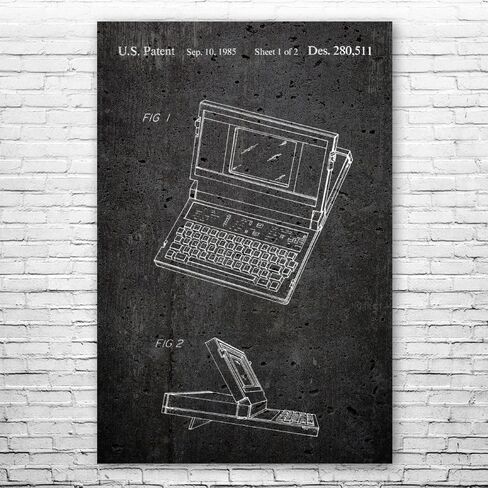 U.S. Patent Sep. 10, 1985 Sheet 1 of 2 Des. 280,511
FIG 1
FIG 2